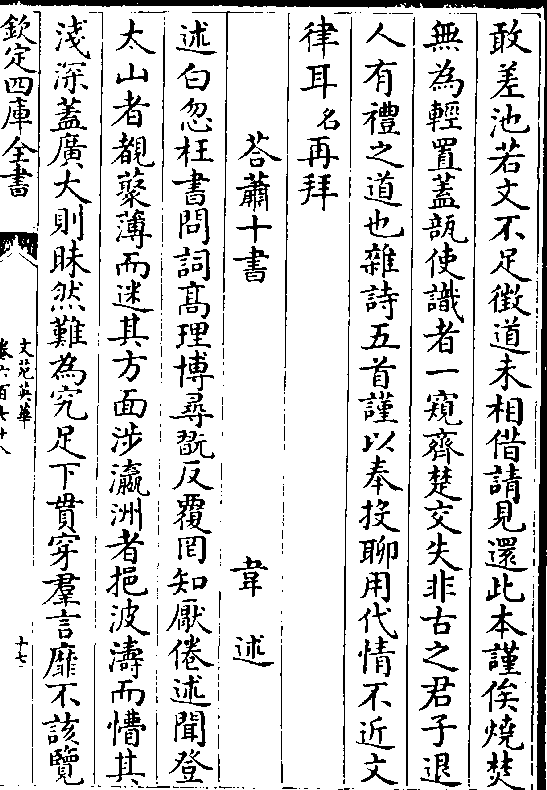 敢差池若文不足徴道未相借請見還此本謹俟燒焚
無為輕置蓋瓿使識者一窺齊楚交失非古之君子退
人有禮之道也雜詩五首謹以奉投聊用代情不近文
律耳名再拜
荅蕭十書 韋述
述白忽枉書問詞髙理博尋翫反覆罔知厭倦述聞登
太山者覩藂薄而迷其方面涉瀛洲者挹波濤而懵其
淺深蓋廣大則昧然難為究足下貫穿羣言靡不該覽
欽定四庫全書
文苑英華
卷六百七十八
十七